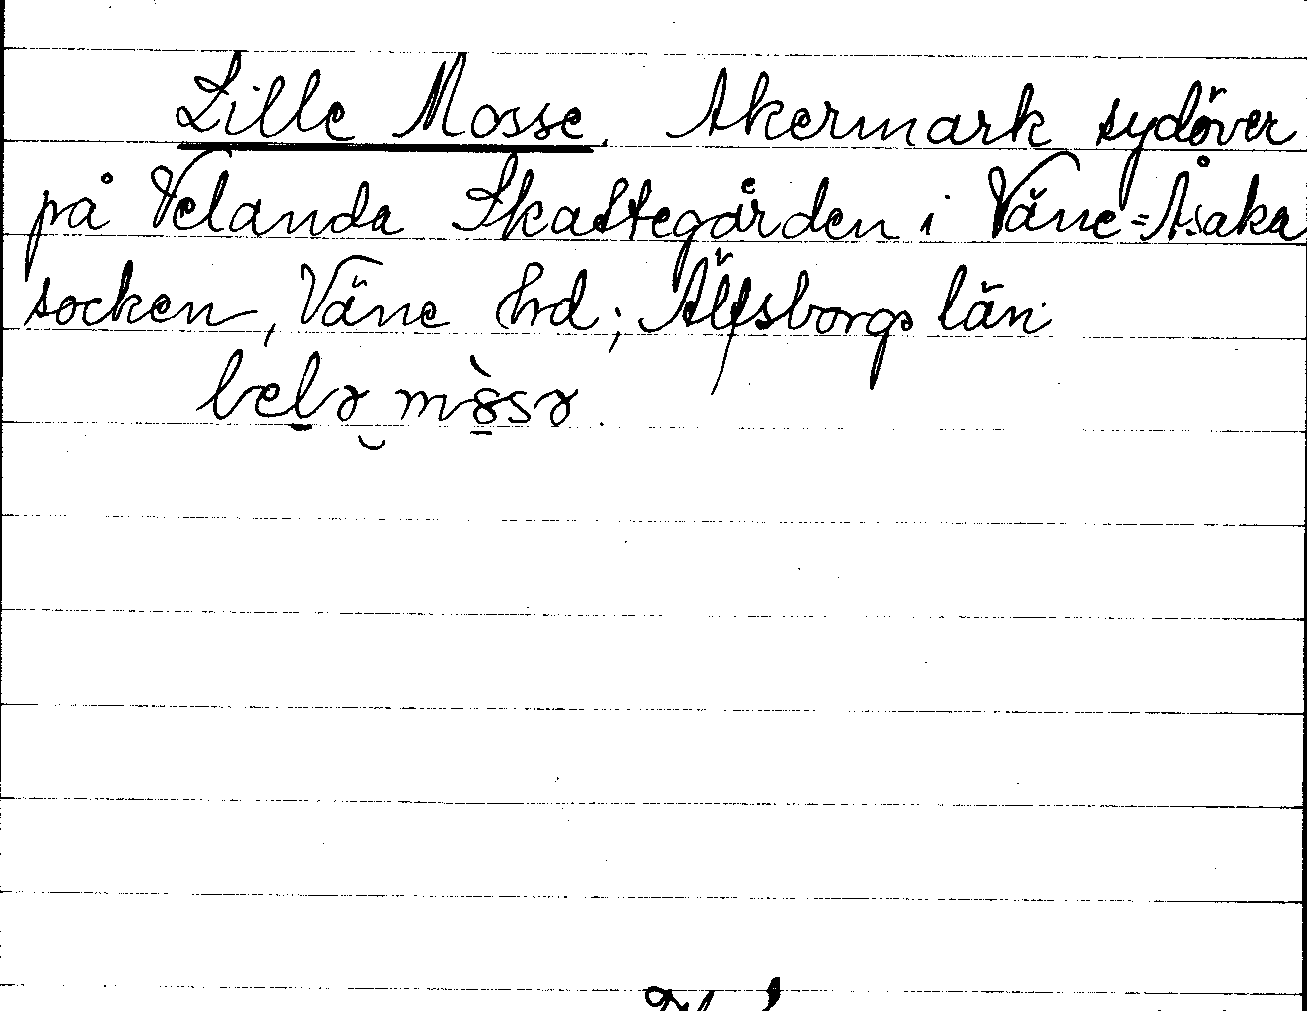 Lille Mosse. Akermark sydöver
på Velanda Skattegården i Väne=Åsaka
socken, Väne hrd; Älfsborgs län